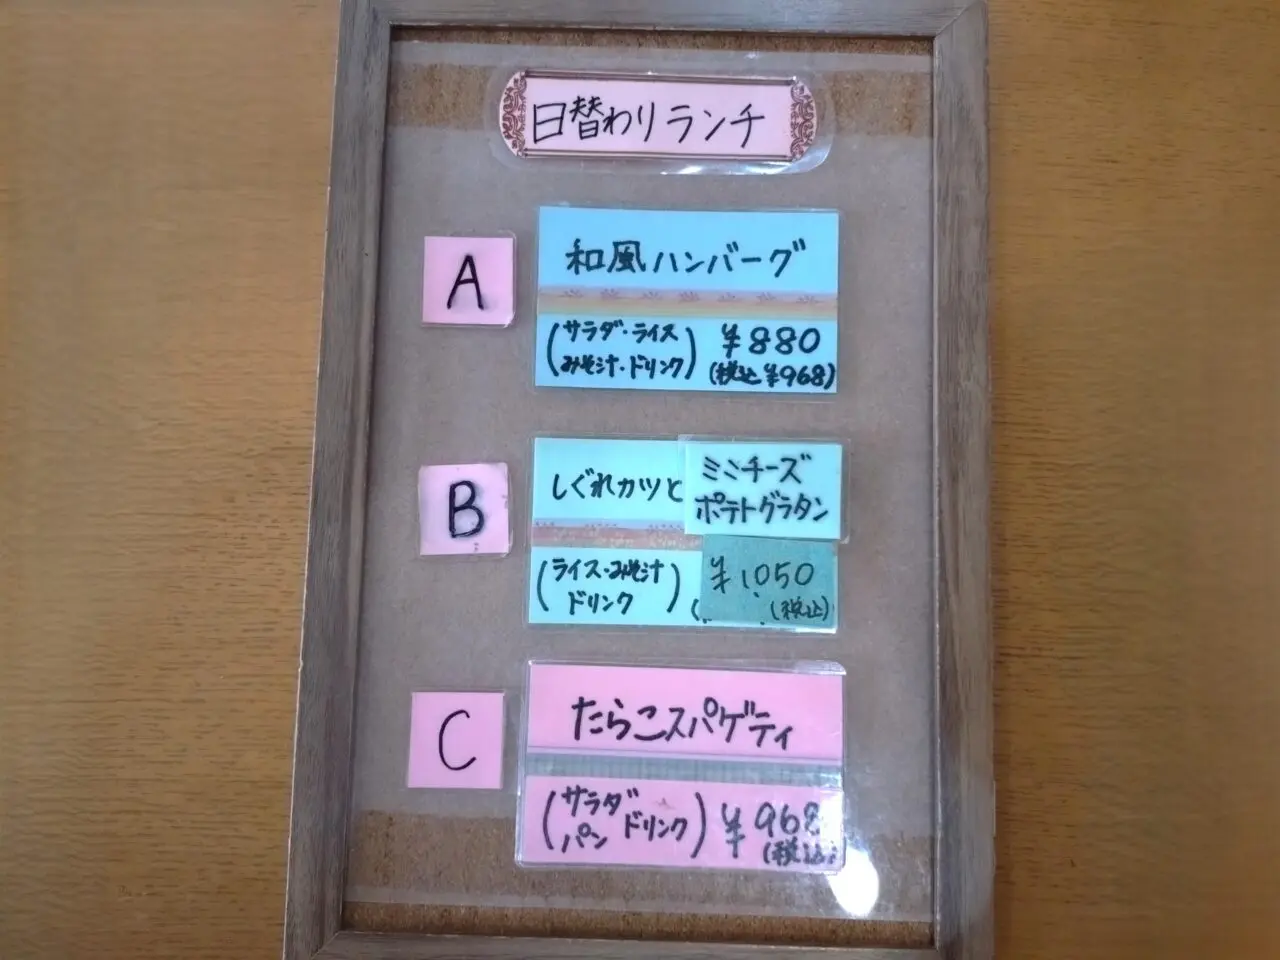 日替わりランチ
A
和風ハンバーグ
(サラダ・ライス
みそ汁・ドリンク)
¥880
(税込¥968)
B
しぐれカツと
ミニチーズ
ポテトグラタン
(ライス・みそ汁
ドリンク)
¥1,050
(税込)
C
たらこスパゲティ
(サラダ
パン ドリンク)
¥968
(税込)